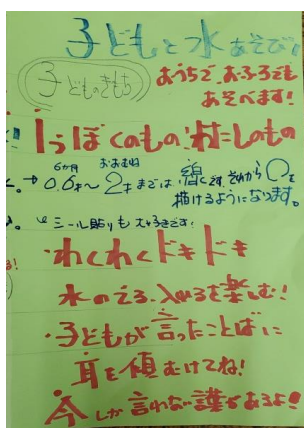 子どもと水あそび!
子どものきもち
おうちで、おふろでも
あそべます!
1うぼくのもの・わたしのもの
6か月 おおむね
→0.6才〜2才までは、線〜です、それから○を
描けるようになります。
シール貼りも大好きです!
・わくわくドキドキ
水のでる、入れるを楽しむ!
・子どもが言ったことばに
耳を傾むけてね!
今しか言わない語があるよ!